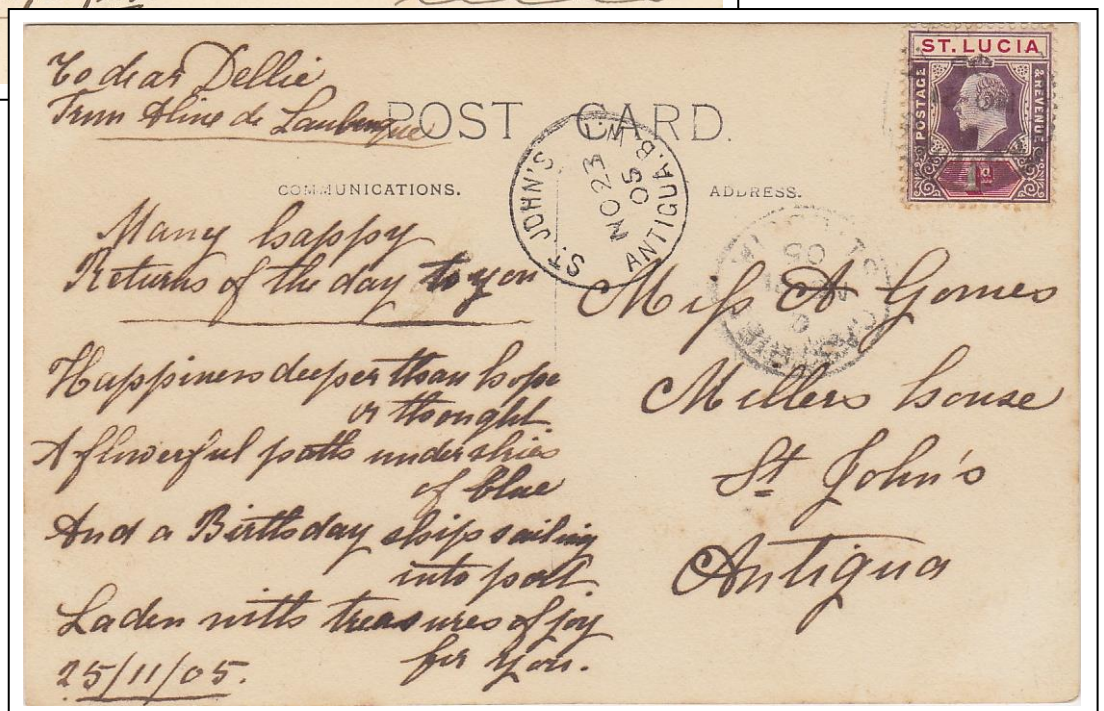 To dear Dellie
From Aline de Laubenque
POST CARD.
COMMUNICATIONS.
ADDRESS.
ST. LUCIA
POSTAGE
& REVENUE
1d
ST. JOHN'S
NO 23
05
ANTIGUA. B.W.I.
05
Many happy
Returns of the day to you
Happiness deeper than hope
or thought.
A flowerful path under skies
of blue
And a Birthday ship sailing
into port.
Laden with treasures of joy
for you.
25/11/05.
Miss A Gomes
Millers house
St John's
Antigua